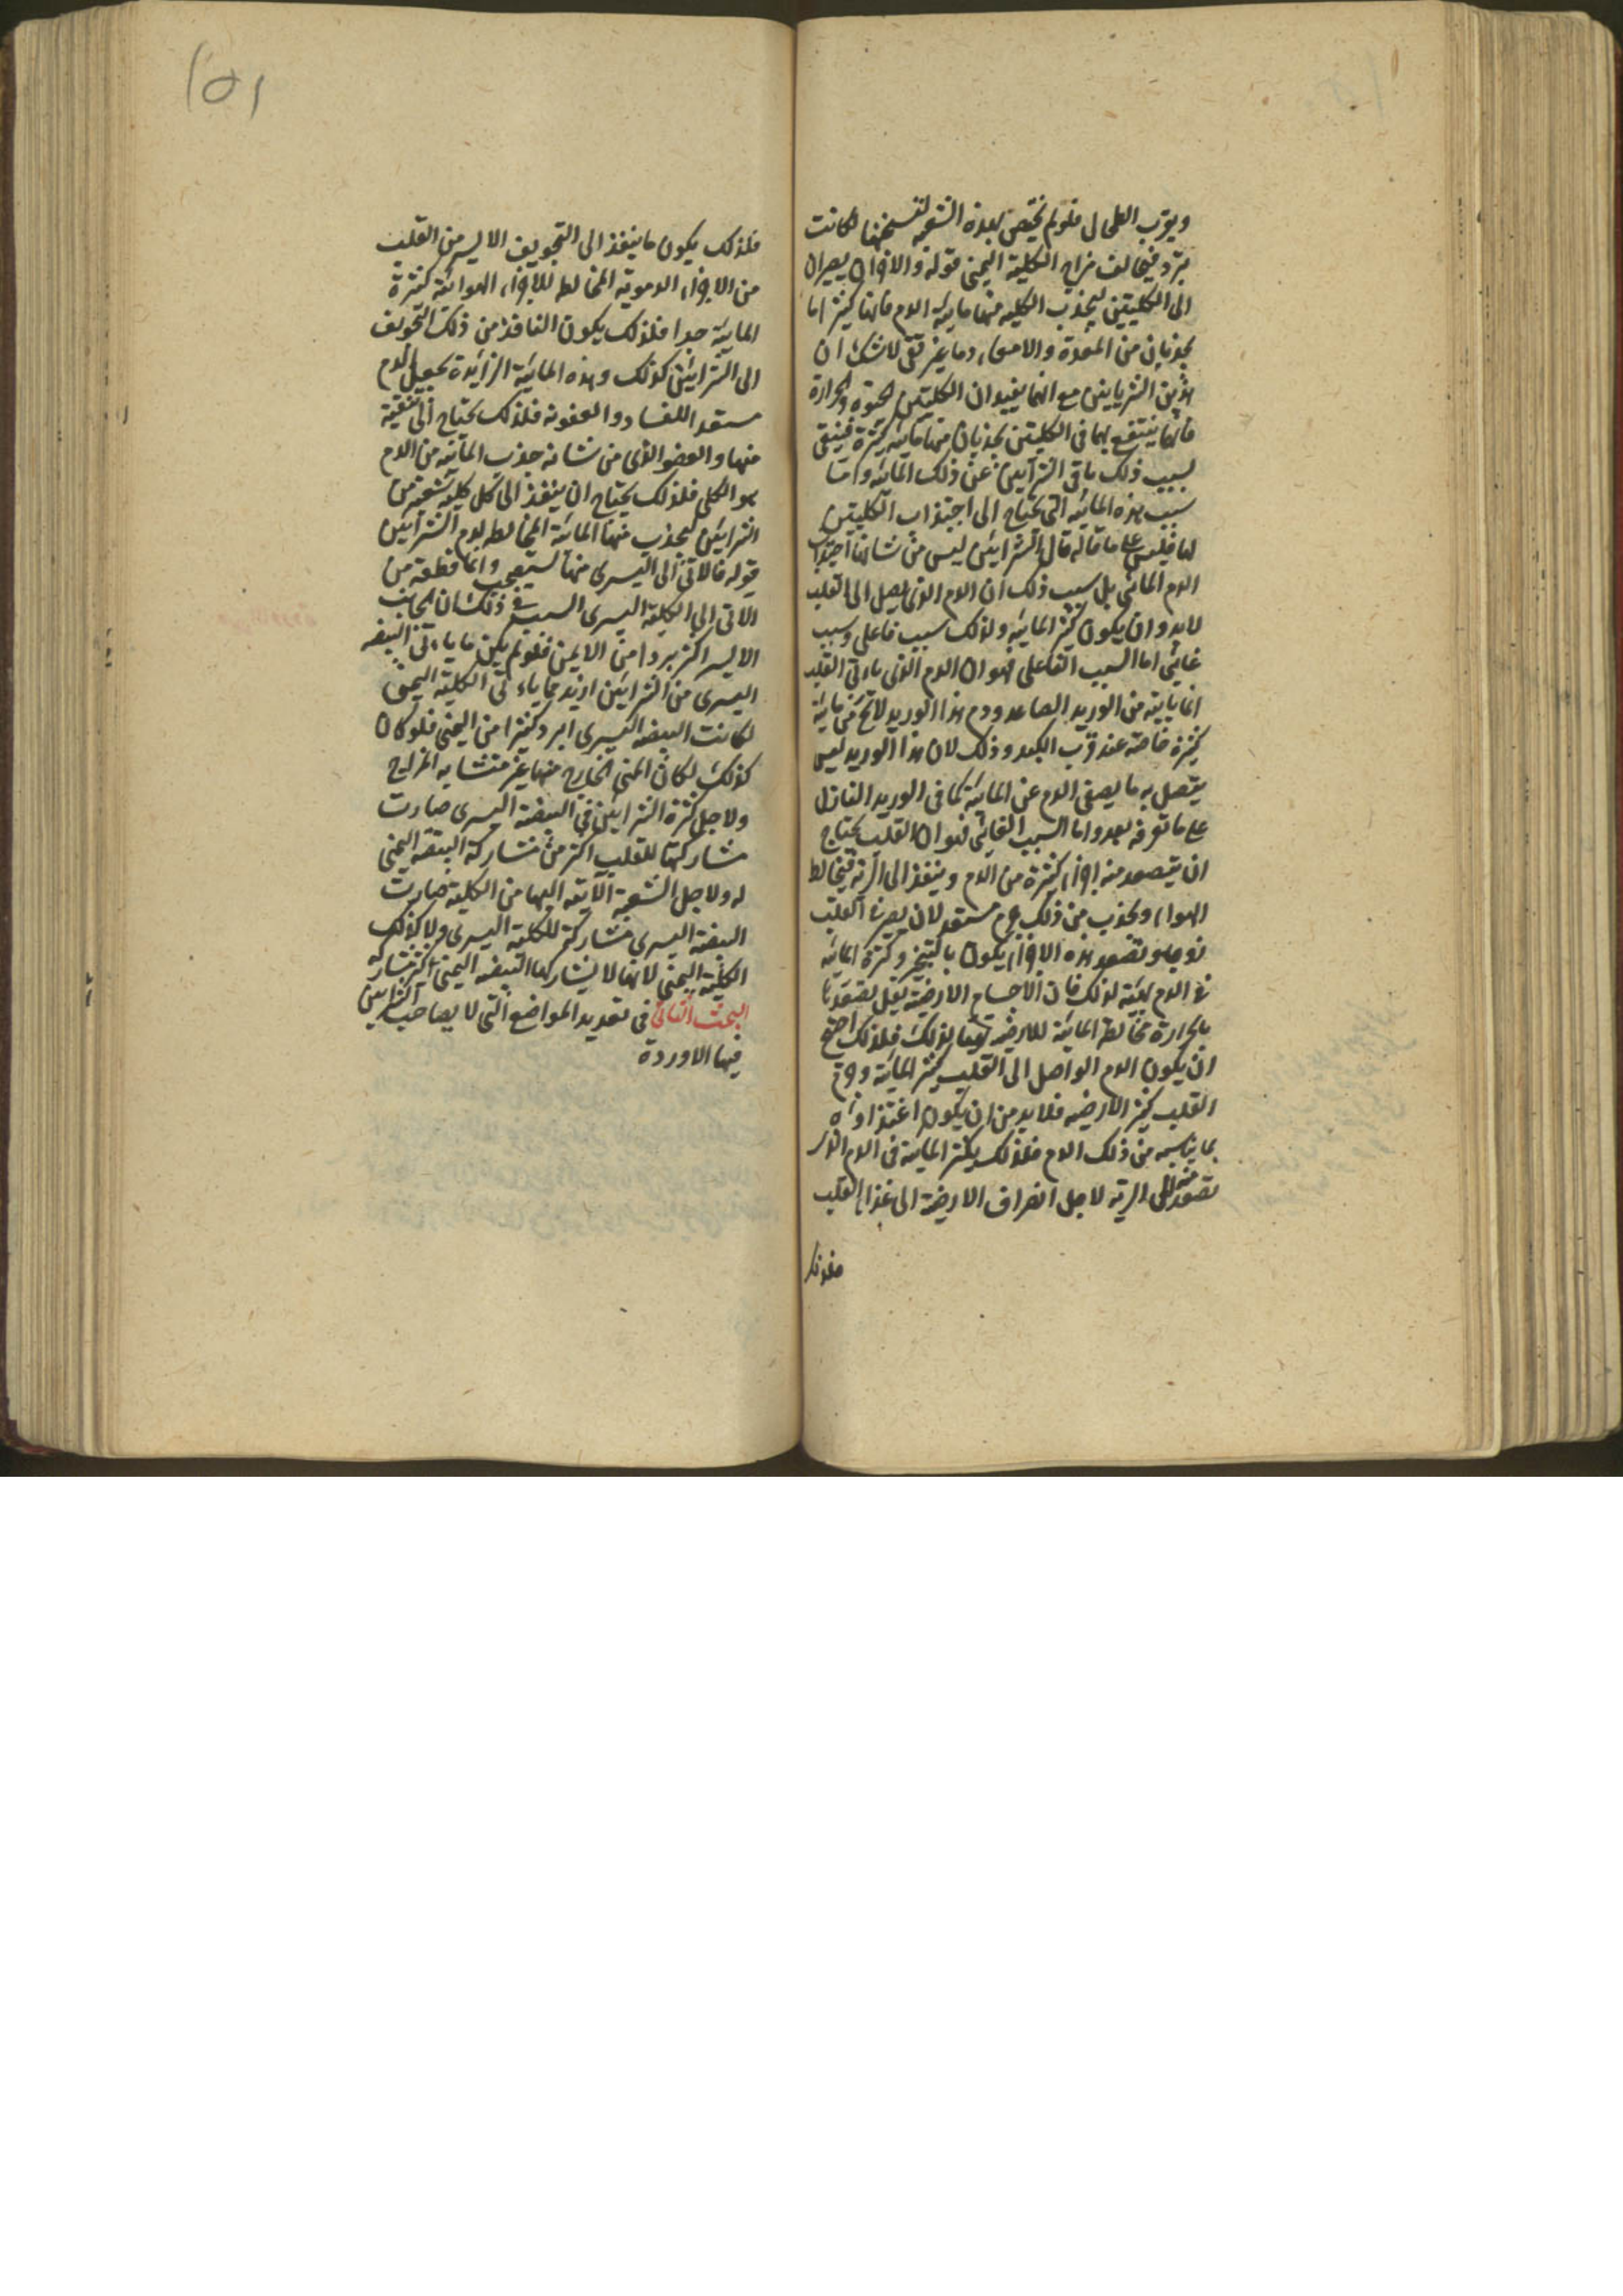 ويقرب الطحال فلو لم تختص بهذه الشعبة لتسخنها لكانت
تبرد فيخالف مزاج الكلية اليمنى قوله والاخران يصيران
الى الكليتين ليجذب الكلية منها مائية الدم فانها كثيرا ما
يجذبان من المعدة والامعاء دما غير نقى لا شك ان
هذين الشريانين مع انهما يفيدان الكليتين الحيوة والحرارة
فانهما ينتفع بهما فى الكليتين يجذبان منهما مائية كثيرة فينقى
بسبب ذلك باقى الشرايين عن ذلك المائية واما
سبب هذه المائية التى تحتاج الى اجتذاب الكليتين
لها فليس على ما قاله قال الشرايين ليس من شانها اجتذاب
الدم المائى بل سبب ذلك ان الدم الذى يصل الى القلب
لابد وان يكون كثير المائية ولذلك سبب فاعلى وسبب
غائى اما السبب الفاعلى فهو ان الدم الذى ياتى القلب
انما ياتيه من الوريد الصاعد ودم هذا الوريد لا تخ من مائية
كثيرة خاصة عند قرب الكبد وذلك لان هذا الوريد ليس
يتصل به ما يصفى الدم عن المائية كما فى الوريد النازل
على ما تعرفه بعد واما السبب الغائى فهو ان القلب يحتاج
ان يتصعد منه اجزاء كثيرة من الدم وينفذ الى الرية فيخالط
الهواء ويجذب من ذلك جرم مستعد لان يصير فى القلب
روحا وتصعد هذه الاجزاء يكون بالتبخر وكثرة المائية
فى الدم تهيئه لذلك فان الاجسام الارضية يقل تصعدها
بالحرارة مخالطة المائية للارضية تهيئها لذلك فلذلك احتيج
ان يكون الدم الواصل الى القلب كثير المائية وجرم
القلب كثير الارضية فلا بد من ان يكون اغتذاؤه
بما يناسبه من ذلك الدم فلذلك يكثر المائية فى الدم الذى
تصعد منه الى الرية لاجل انصراف الارضية الى غذاء القلب
فلذلك
١٥١
فلذلك يكون ما ينفذ الى التجويف الايسر من القلب
من الاجزاء الدموية المخالطة للاجزاء الهوائية كثيرة
المائية جدا فلذلك يكون النافذ من ذلك التجويف
الى الشرايين كذلك وهذه المائية الزايدة تجعل الدم
مستعدا للفساد والعفونة فلذلك يحتاج الى تنقية
منها والعضو الذى من شانه جذب المائية من الدم
هو الكلى فلذلك يحتاج ان ينفذ الى كل كلية شعبة من
الشرايين ليجذب منها المائية المخالطة لدم الشرايين
قوله فالاتى الى اليسرى منها يستصحب وانما قطعة من
الاتى الى الكلية اليسرى السبب فى ذلك ان الجانب
الايسر اكثر بردا من الايمن فلو لم يكن ما ياتى البيضة
اليسرى من الشرايين ازيد مما ياتى الكلية اليمنى
لكانت البيضة اليسرى ابرد كثيرا من اليمنى فلو كان
كذلك لكان المنى الخارج منها غير متشابه المزاج
ولاجل كثرة الشرايين فى البيضة اليسرى صارت
مشاركتها للقلب اكثر من مشاركة البيضة اليمنى
له ولاجل الشعبة الاتية اليها من الكلية صارت
البيضة اليسرى مشاركة للكلية اليسرى ولا كذلك
الكلية اليمنى لانها لا يشاركها البيضة اليمنى اكثر مشاركة
البحث الثانى فى تعديد المواضع التى لا يصاحب الشرايين
فيها الاوردة